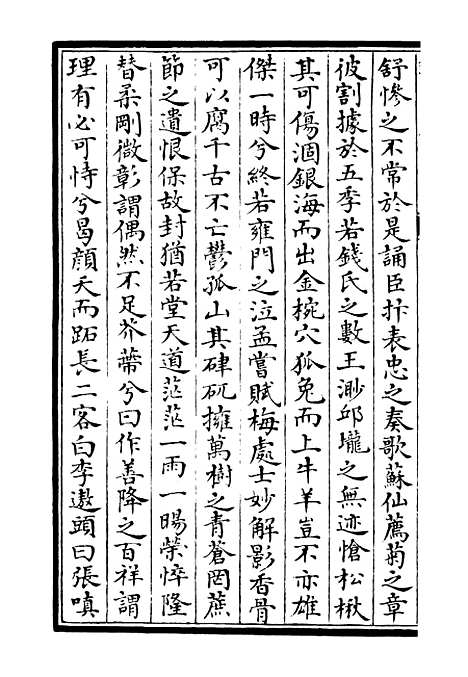 舒慘之不常於是誦臣抃表忠之奏歌蘇仙薦菊之章
彼割據於五季若錢氏之數王渺邱壠之無迹愴松楸
其可傷涸銀海而出金椀穴狐兔而上牛羊豈不亦雄
傑一時兮終若雍門之泣孟嘗賦梅處士妙解影香骨
可以腐千古不亡鬱孤山其硉矹擁萬樹之青蒼罔蔗
節之遺恨保故封猶若堂天道茫茫一雨一暘榮悴隆
替柔剛微彰謂偶然不足芥蔕兮曰作善降之百祥謂
理有必可恃兮曷顔夭而跖長二客白李遨頭曰張嗔